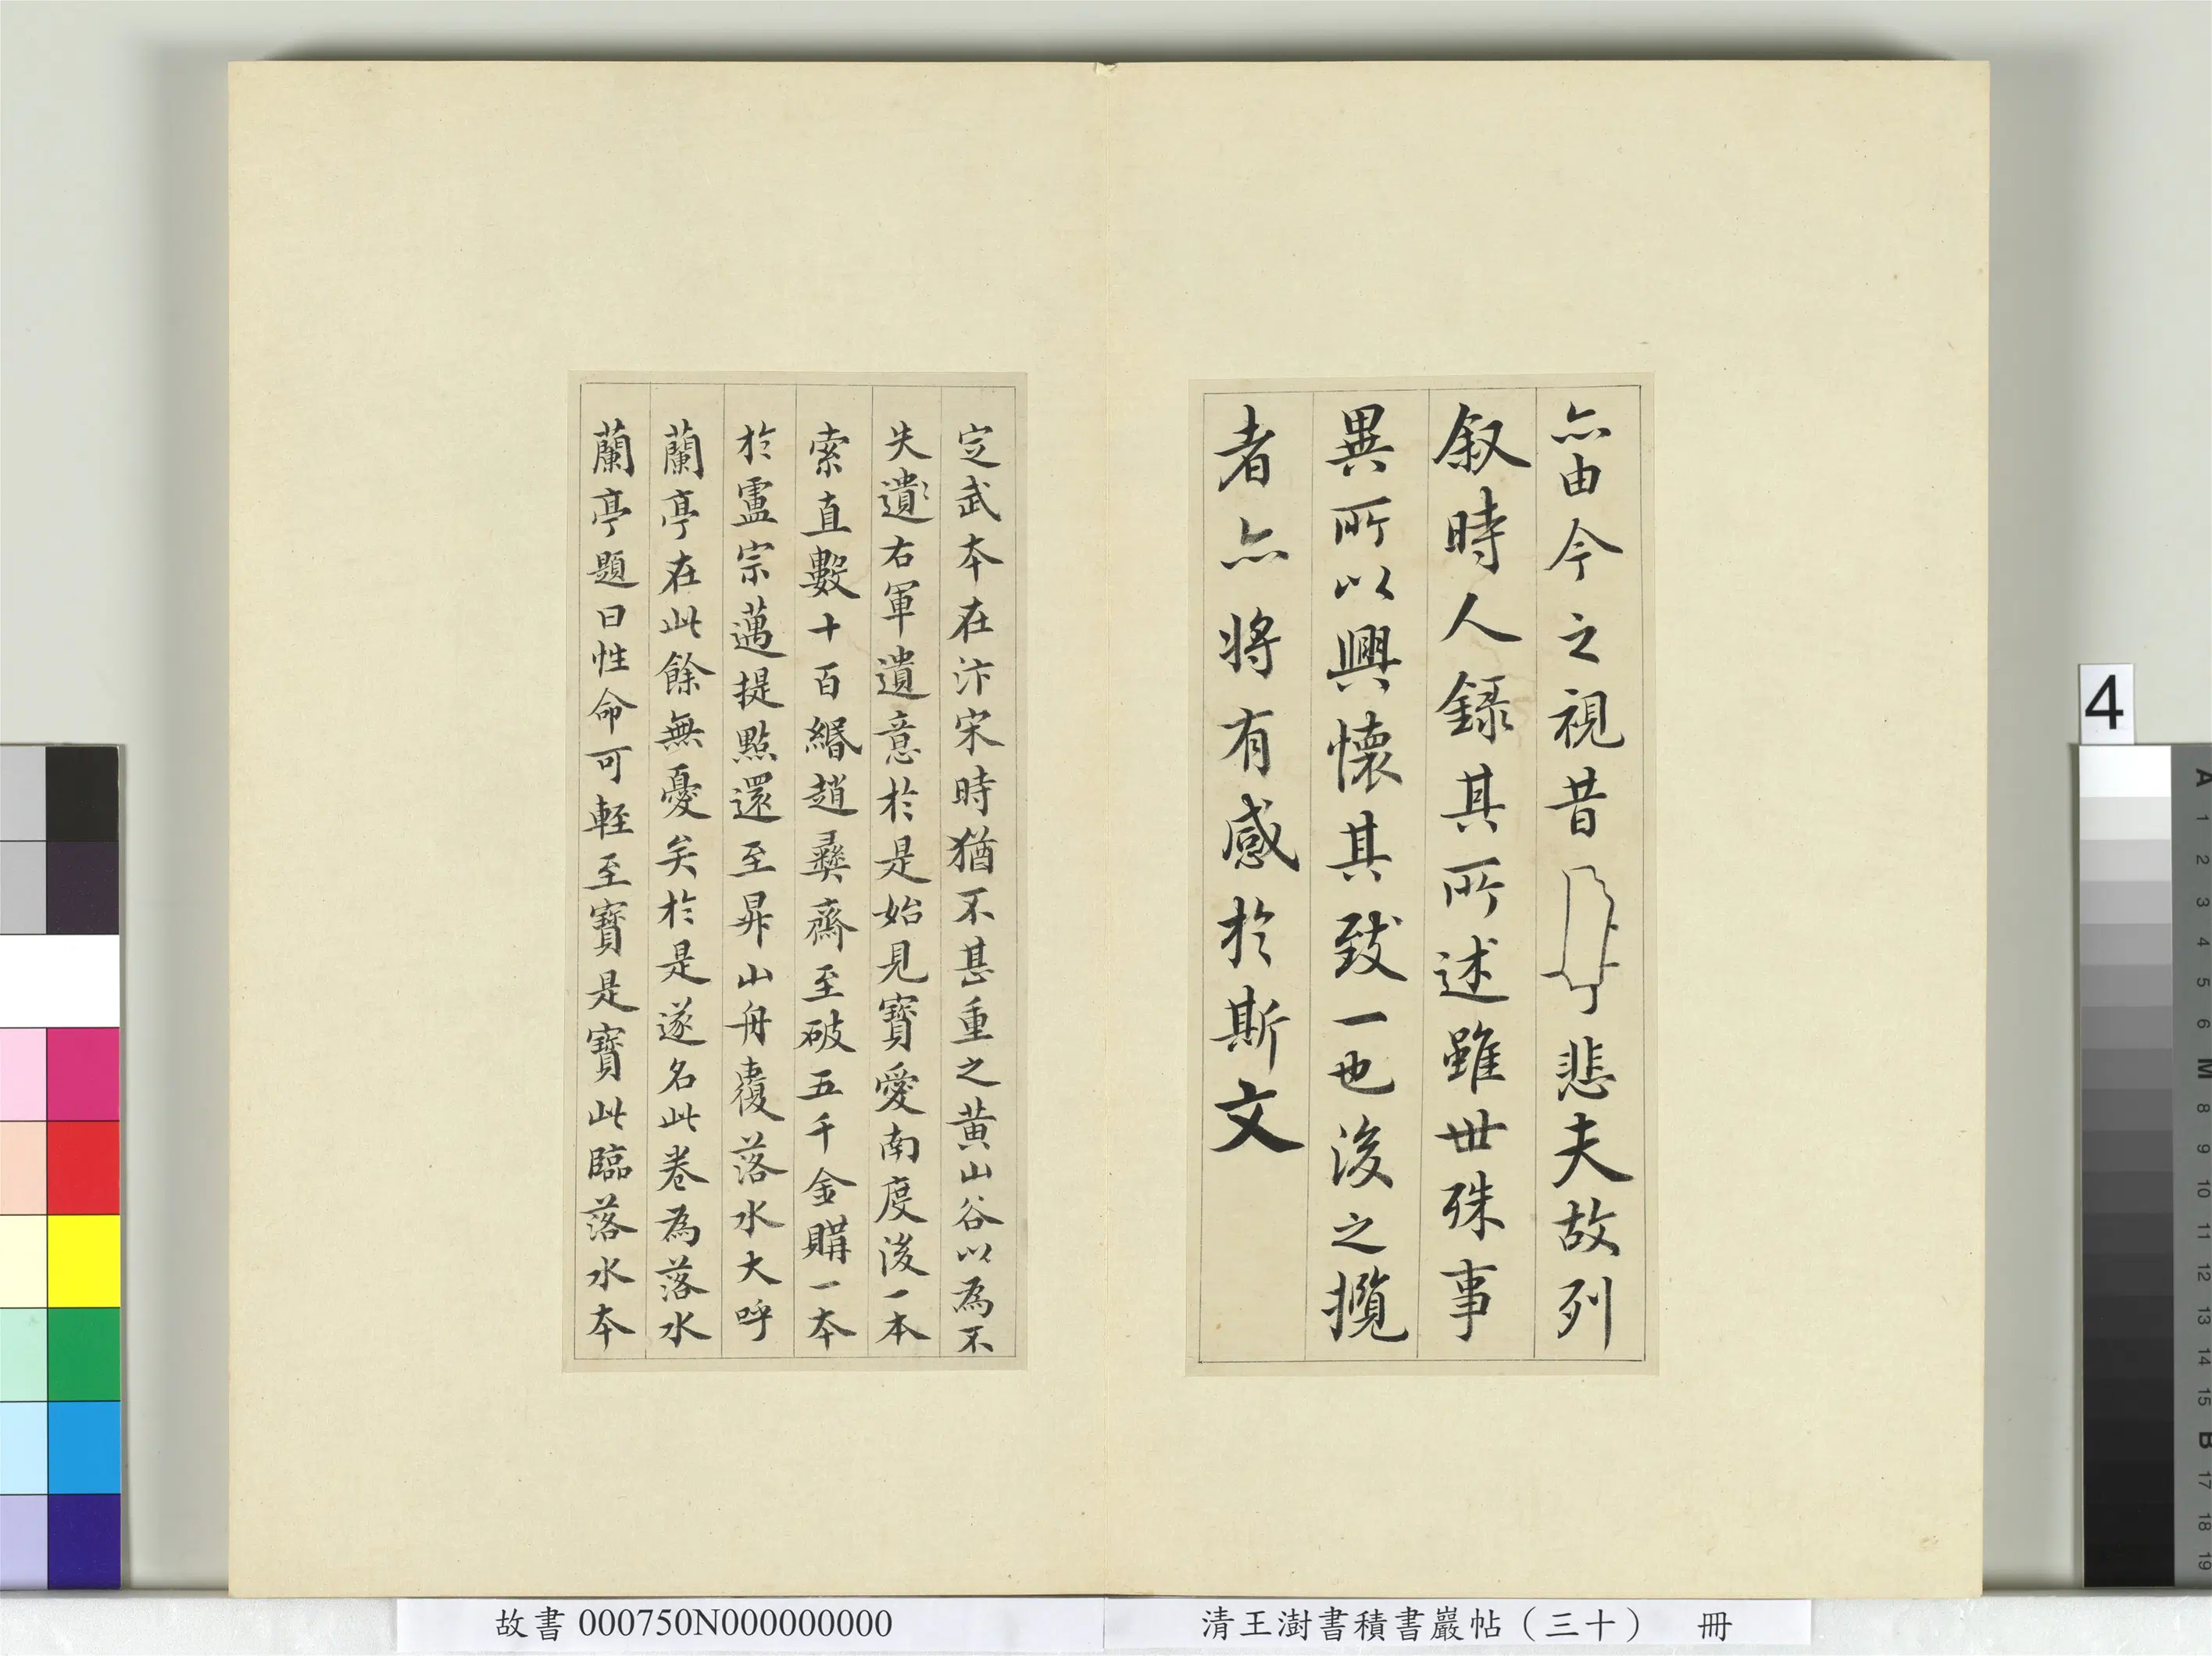 亦由今之視昔悲夫故列
叙時人錄其所述雖世殊事
異所以興懷其致一也後之攬
者亦將有感於斯文
定武本在汴宋時猶不甚重之黃山谷以為不
失遺右軍遺意於是始見寶愛南度後一本
索直數十百緡趙彝齋至破五千金購一本
於盧宗邁提點還至昇山舟覆落水大呼
蘭亭在此餘無憂矣於是遂名此卷為落水
蘭亭題曰性命可輕至寶是寶此臨落水本
故書 000750N000000000
清王澍書積書巖帖（三十） 冊
4
A 1 2 3 4 5 6 M 8 9 10 11 12 13 14 15 B 17 18 19